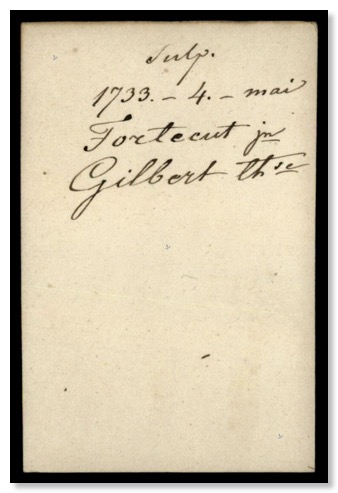 Sulp.
1733. - 4. - mai
Fortecut jn
Gilbert thse